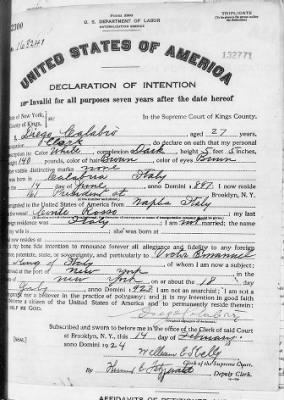 TRIPLICATE
U. S. DEPARTMENT OF LABOR
NATURALIZATION SERVICE
UNITED STATES OF AMERICA
132771
DECLARATION OF INTENTION
Invalid for all purposes seven years after the date hereof
State of New York,
In the Supreme Court of Kings County.
County of Kings,
aged 27 years,
occupation Clerk, do declare on oath that my personal
description is: Color White, complexion Dark, height 5 feet 5 inches,
weight 140 pounds, color of hair Brown, color of eyes Brown
other visible distinctive marks none
Calabria Italy
on the 14 day of June, anno Domini 1897; I now reside
at President St, Brooklyn, N. Y.
I emigrated to the United States of America from Naples Italy
on the vessel Conte Rosso; my last
foreign residence was Italy; I am not married; the name
of my wife is ; she was born at
and now resides at
It is my bona fide intention to renounce forever all allegiance and fidelity to any foreign
prince, potentate, state, or sovereignty, and particularly to Victor Emmanuel
King of Italy, of whom I am now a subject;
I arrived at the port of New York, in the
State of New York, on or about the 18 day
of July, anno Domini 1922; I am not an anarchist; I am not a
polygamist nor a believer in the practice of polygamy; and it is my intention in good faith
to become a citizen of the United States of America and to permanently reside therein:
SO HELP ME GOD.
Subscribed and sworn to before me in the office of the Clerk of said Court
at Brooklyn, N. Y., this 14 day of February
anno Domini 1924
[SEAL]
William E. Kelly
Clerk of the Supreme Court.
Deputy Clerk.